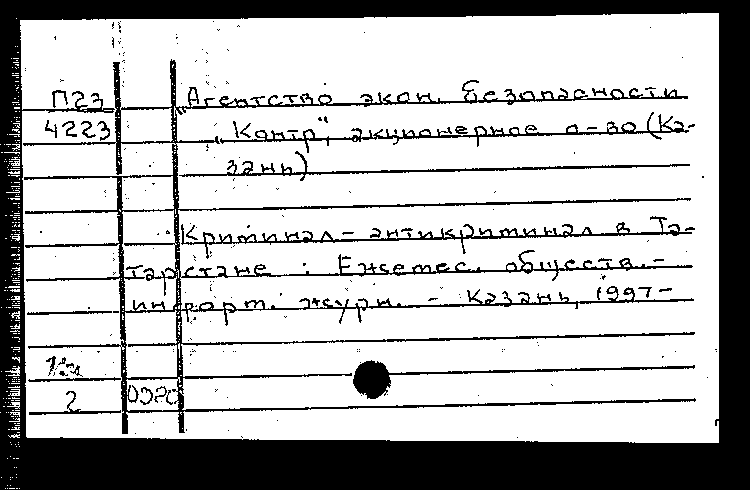 П23
4223
„Агентство экон. безопасности
„Контр", акционерное о-во (Ка-
зань)
Криминал-антикриминал в Та-
тарстане : Ежемес. обществ.-
информ. журн. - Казань, 1997-
2